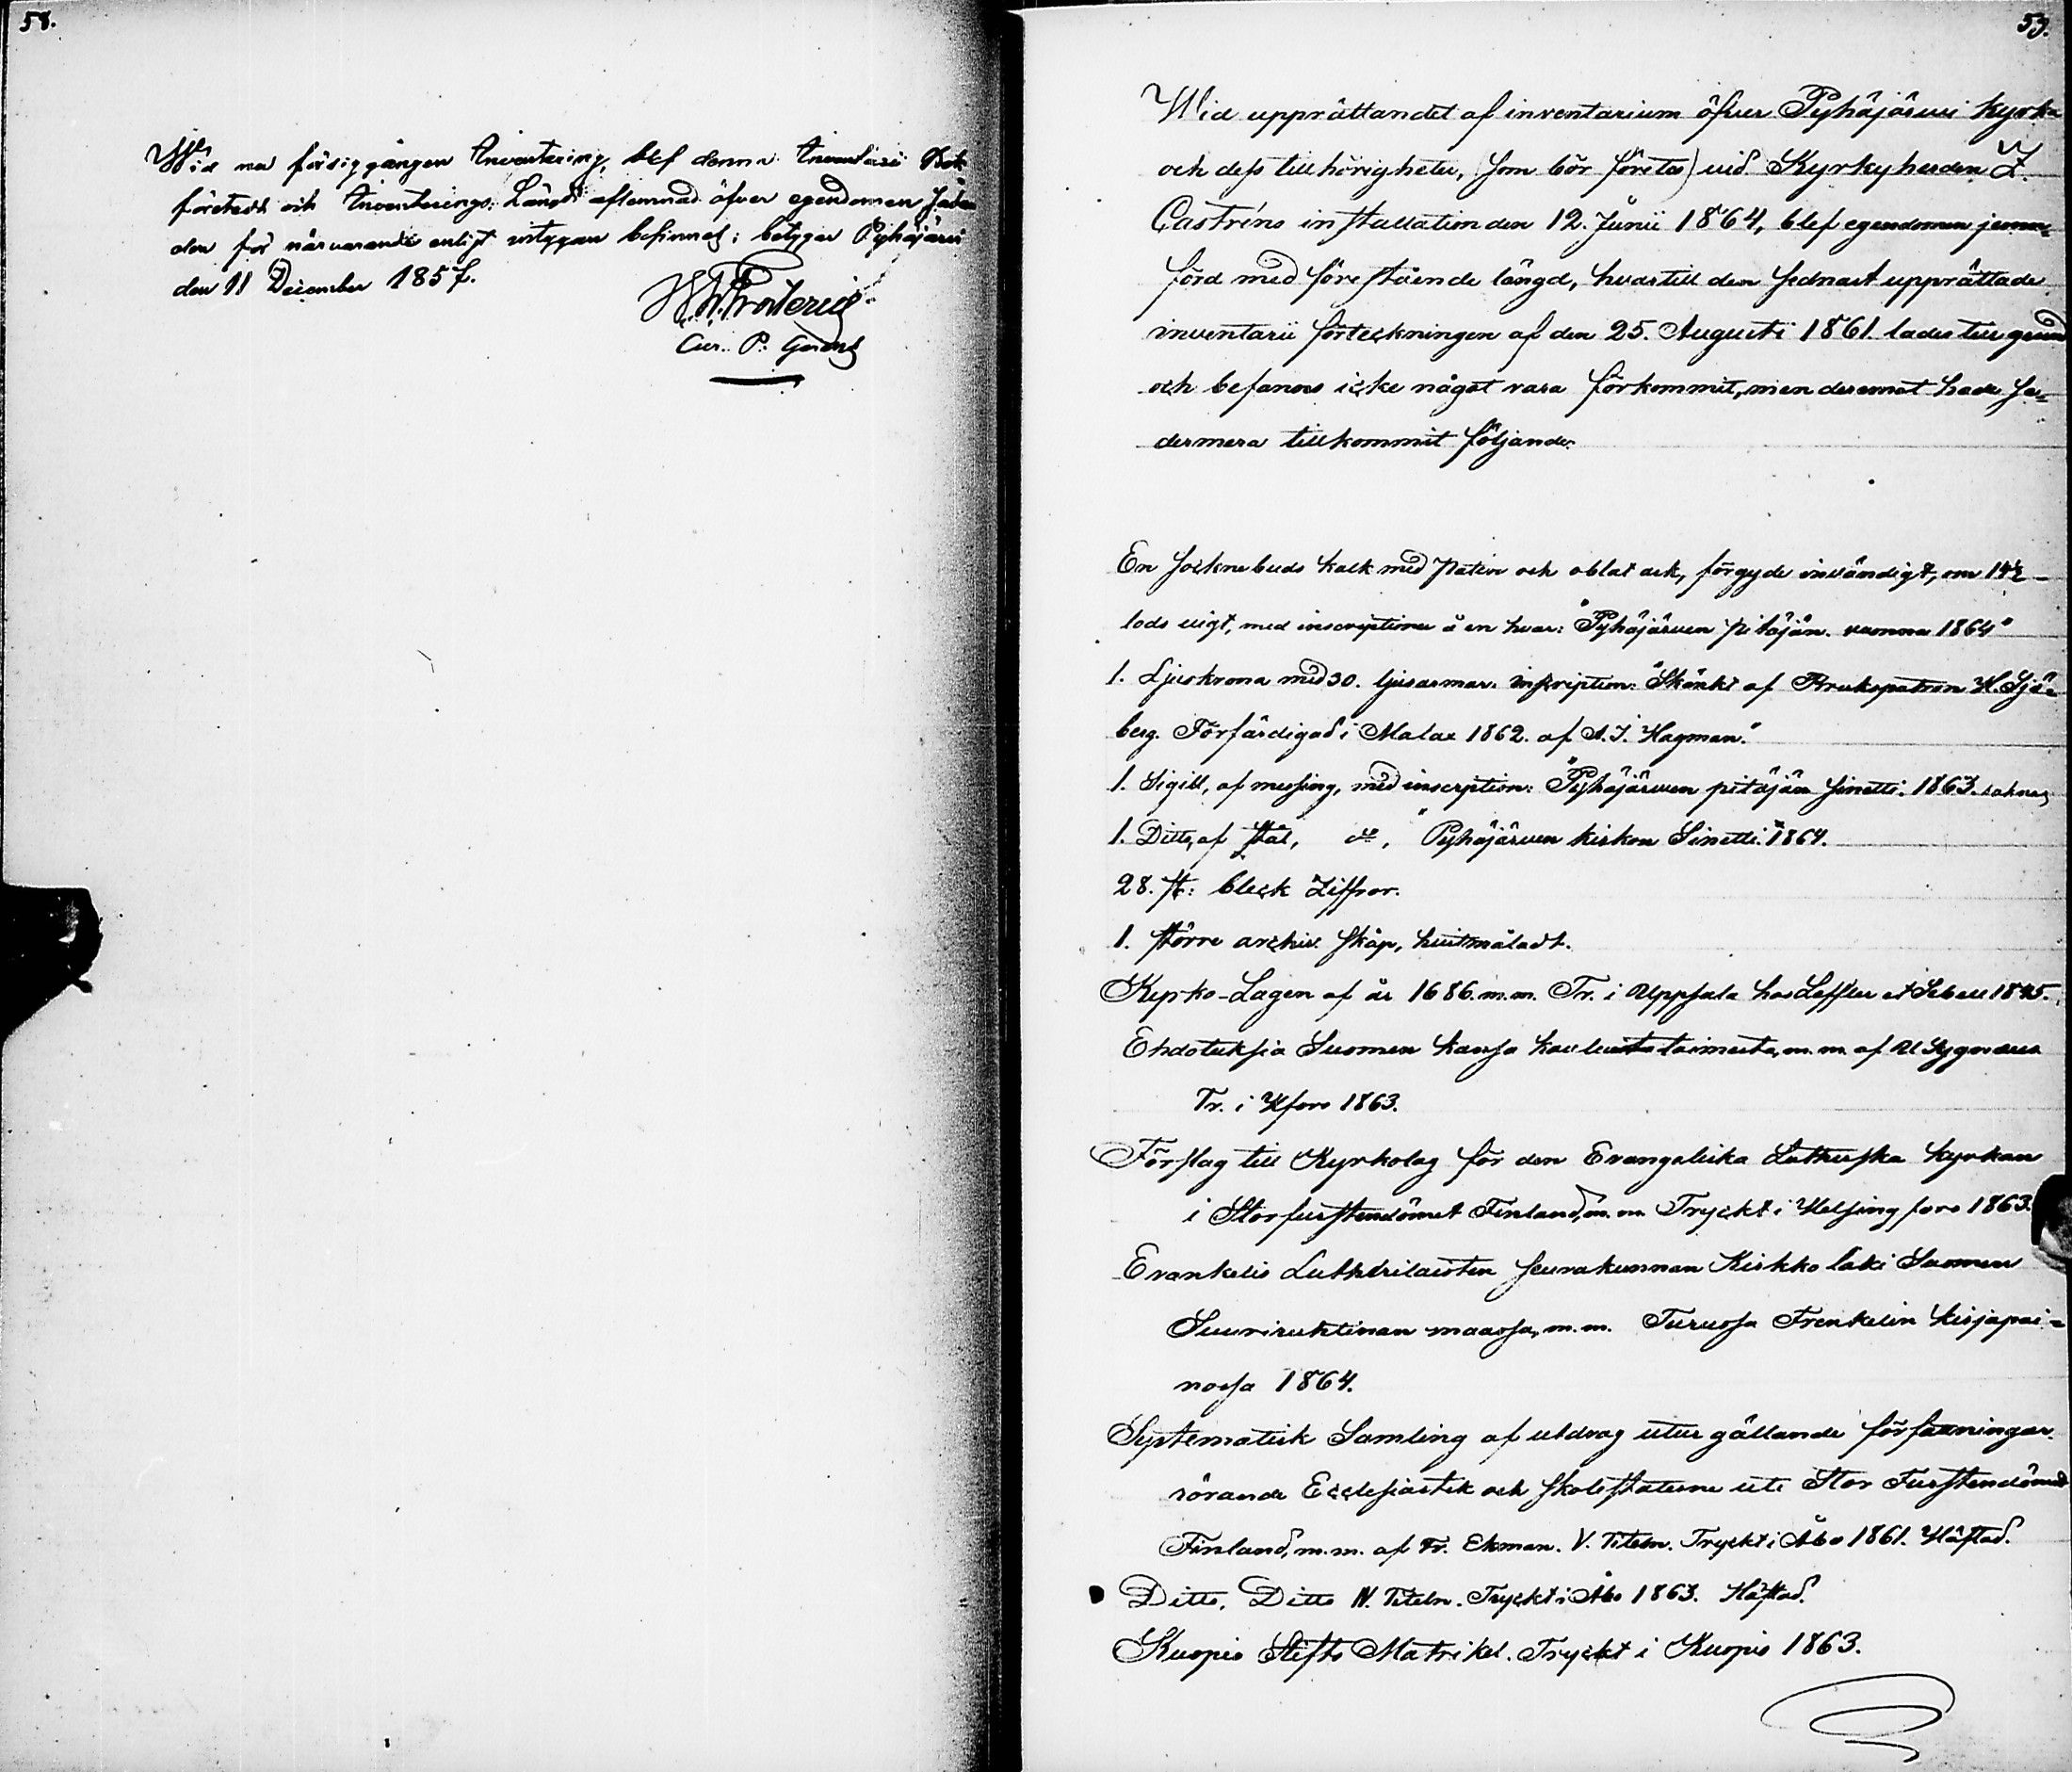 58.
Wid nu försiggången Inventering, blef denna Inventarii Bok
företedd och Inventerings Längd aflemnad öfver egendomen sådan
den för närvarande enligt intygan befinnes; betygar Pyhäjärvi
den 11 December 1857.
Cur. P: Gerens
59.
Wid upprättandet af inventarium öfver Pyhäjärvi kyrka
och dess tillhörigheter, (som bör företes) vid Kyrkyherden Z.
Castréns installation den 12. Junii 1864, blef egendomen jemn=
förd med förestående längd, hvartill den sednast upprättade
inventarii förteckningen af den 25. Augusti 1861. lades till grund
och befanns icke något vara förkommit, men deremot hade se=
dermera tillkommit följande:
En sockne buds kalk med paten och oblat ask, förgylde invändigt, om 14½
lods vigt, med inscriptioner å en hvar: "Pyhäjärven pitäjän. vuonna 1864"
1. Ljuskrona med 30. ljusarmar. inscription: "Skänkt af Brukspatron H. Sjö=
berg. Förfärdigad i Malax 1862. af A. J. Hagman."
1. Sigill, af messing, med inscription: "Pyhäjärven pitäjän sinetti. 1863. saknas
1. Ditto, af stål, do, "Pyhäjärven kirkon Sinetti." 1864.
28. st: bleck Ziffror.
1. större archiv skåp, hvitmåladt.
Kyrko-Lagen af år 1686. m.m. Tr. i Uppsala hos Leffler et Sebell 1845.
Ehdotuksia Suomen kansa koulu toimesta, m.m. af U Cygnæus
Tr. i Hfors 1863.
Förslag till Kyrkolag för den Evangeliska Lutherska kyrkan
i Storfurstendömet Finland, m.m. Tryckt i Helsingfors 1863.
Evankelis Lutherilaisten seurakunnan Kirkko laki Suomen
Suuriruhtinan maassa, m.m. Turussa Frenkelin kirjapai=
nossa 1864.
Systematisk Samling af utdrag utur gällande författningar
rörande Ecclesiastik och skolstaterne uti Stor Furstendömet
Finland, m.m. af Fr. Ekman. V. Titeln. Tryckt i Åbo 1861. Häftad.
Ditto, Ditto IV. Titeln. Tryckt i Åbo 1863. Häftad.
Kuopio Stifts Matrikel. Tryckt i Kuopio 1863.